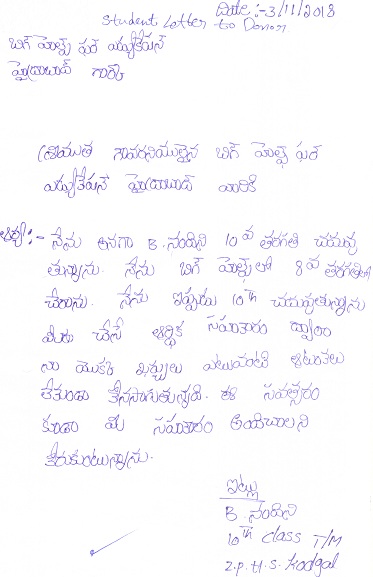 Date :- 3/11/2018
Student Letter to Donor
బిగ్ హెల్ప్ ఫర్ ఎడ్యుకేషన్
హైదరాబాద్ గార్కి
శ్రీయుత గౌరవనీయులైన బిగ్ హెల్ప్ ఫర్
ఎడ్యుకేషన్ హైదరాబాద్ వారికి
ఆర్య :- నేను అనగా B. నందిని 10వ తరగతి చదువు
తున్నాను. నేను బిగ్ హెల్ప్ లో 8వ తరగతిలో
చేరాను. నేను ఇప్పుడు 10th చదువుతున్నాను
మీరు చేసే ఆర్థిక సహకారం ద్వారా
నా యొక్క ఖర్చులు ఎటువంటి ఆటంకలు
లేకుండా కొనసాగుతున్నది. ఈ సవత్సరం
కూడా మీ సహకారం అందించాలని
కోరుకుంటున్నాను.
ఇట్లు
B. నందిని
10th class T/M
Z.P.H.S. Kodgal